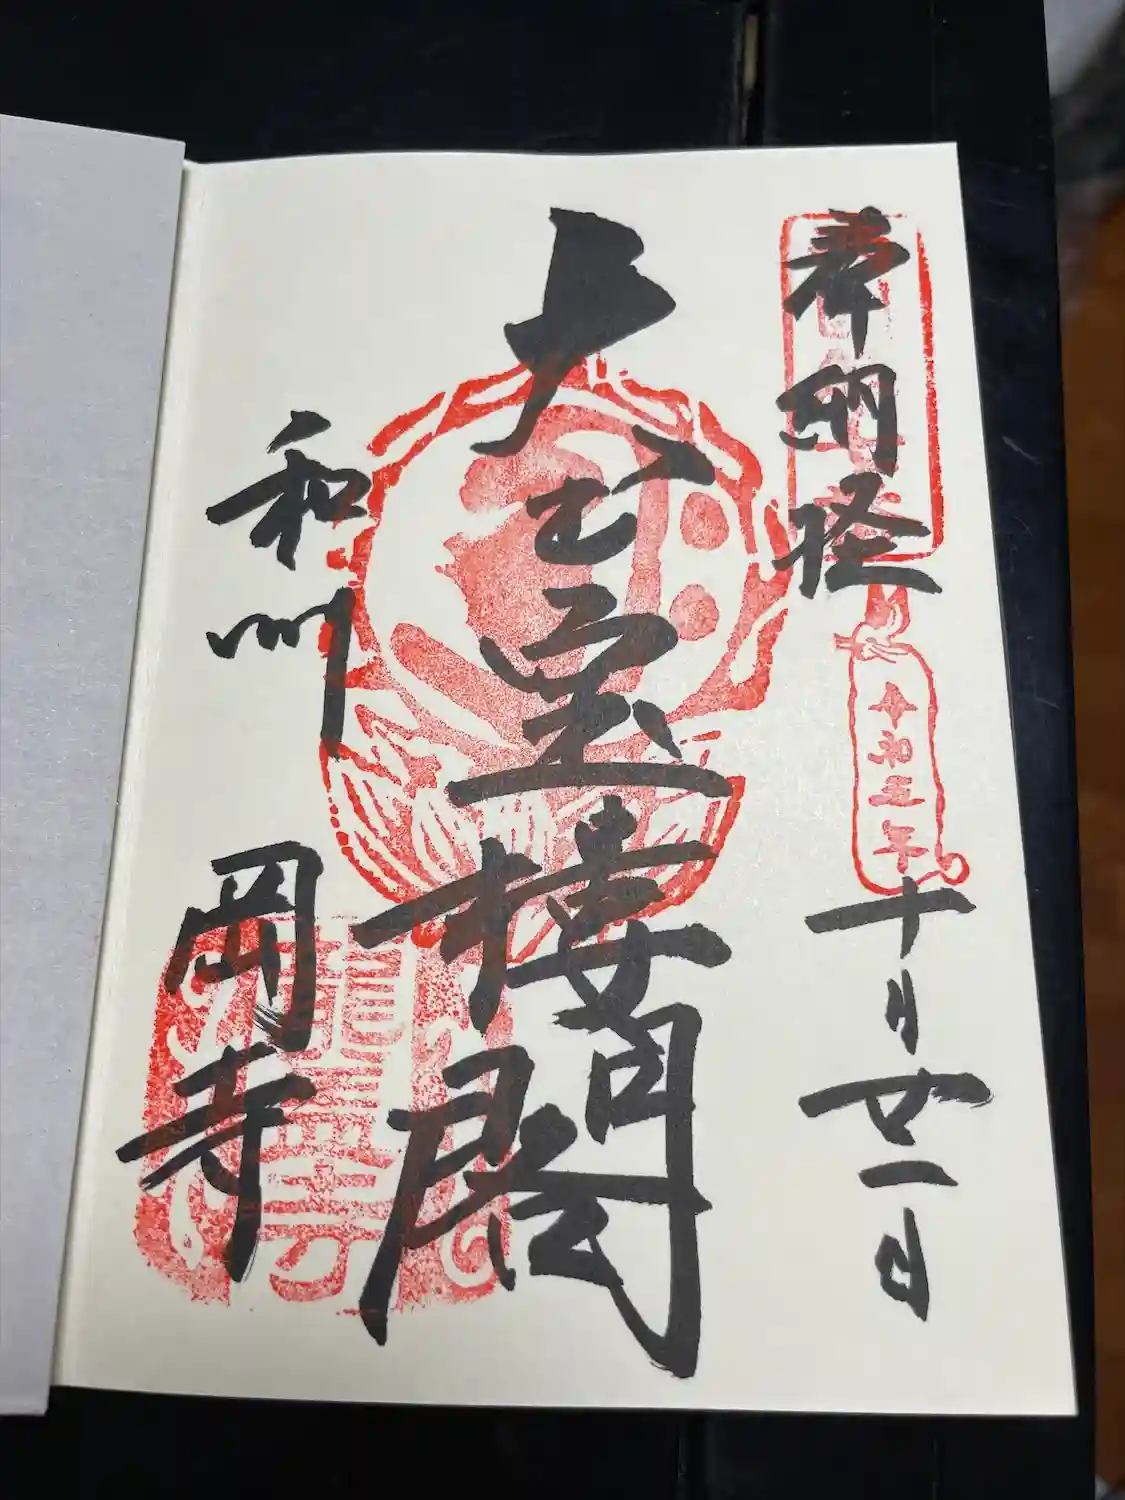 奉納経
令和三年
十月廿一日
大
宝楼閣
和州
岡寺
龍蓋寺